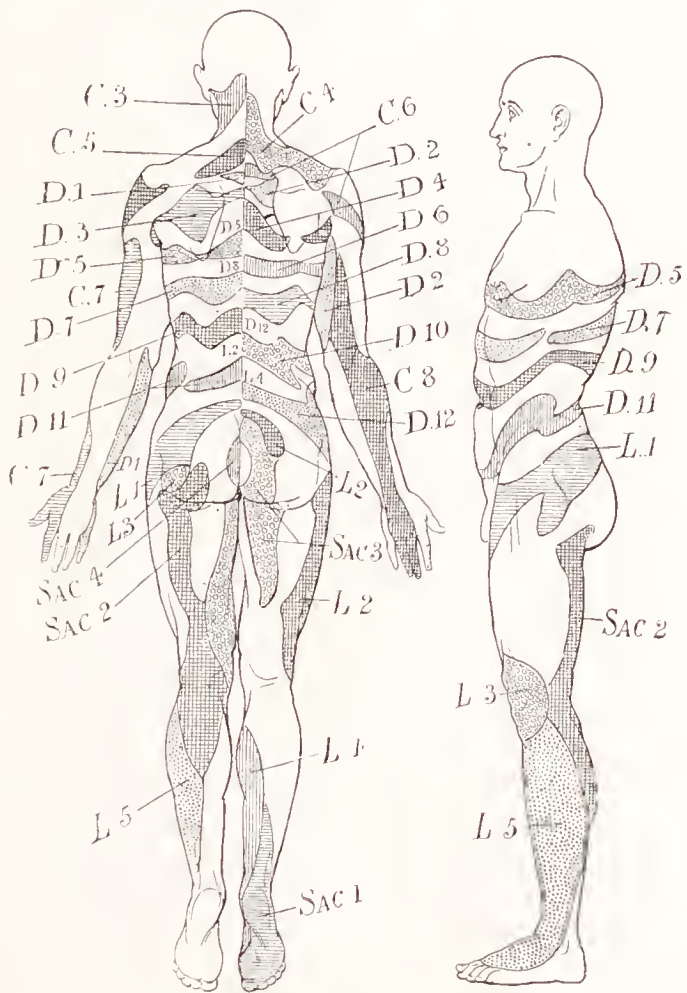 C.3
C 4
C.6
C.5
D.2
D.1
D 4
D.3
D 6
D.5
D.5
D.8
D.8
C.7
D 2
D.7
D.12
D 10
D.9
L.2
C 8
D.11
L.1
D.12
C 7
D.1
L 1
L2
L3
SAC 3
SAC 4
SAC 2
L 2
L 5
SAC 1
D.5
D.7
D.9
D.11
L.1
SAC 2
L 3
L 5